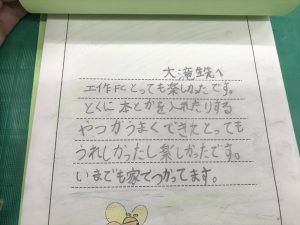 大滝先生へ
工作FCとっても楽しかったです。
とくに本とかを入れたりする
やつがうまくできてとっても
うれしかったし楽しかったです。
いまでも家でつかってます。